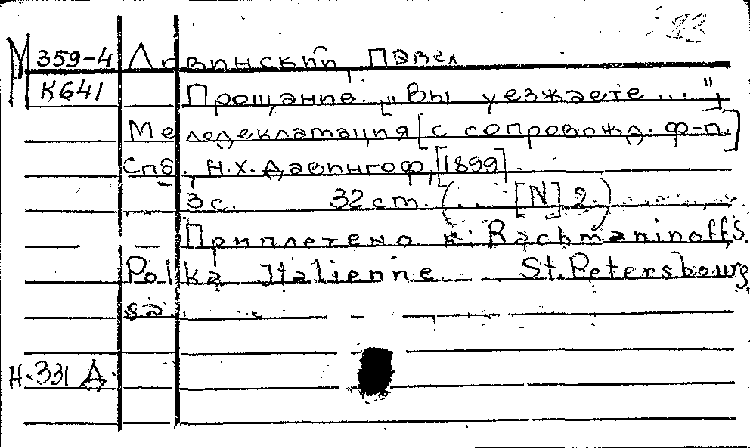 М 359-4 Ловинский, Павел
К641 Прощание „Вы уезжаете ...",
Мелодекламация [с сопровожд. ф-п.]
Спб., Н.Х. Давингоф, [1899]
3 с. 32 cm. (... [N] 2)
Приплетено к: Rachmaninoff S.
Polka Italienne St. Petersbourg
sa
Н-331 Д